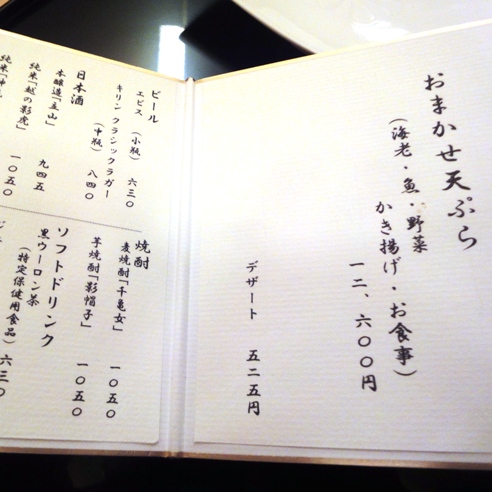 おまかせ天ぷら
(海老・魚・野菜
かき揚げ・お食事)
一二、六〇〇円
デザート 五二五円
ビール
エビス (小瓶) 六三〇
キリンクラシックラガー
(中瓶) 八四〇
日本酒
本醸造「立山」 九四五
純米「越の影虎」 一〇五〇
焼酎
麦焼酎「千亀女」 一〇五〇
芋焼酎「影帽子」 一〇五〇
ソフトドリンク
黒ウーロン茶
(特定保健用食品) 六三〇